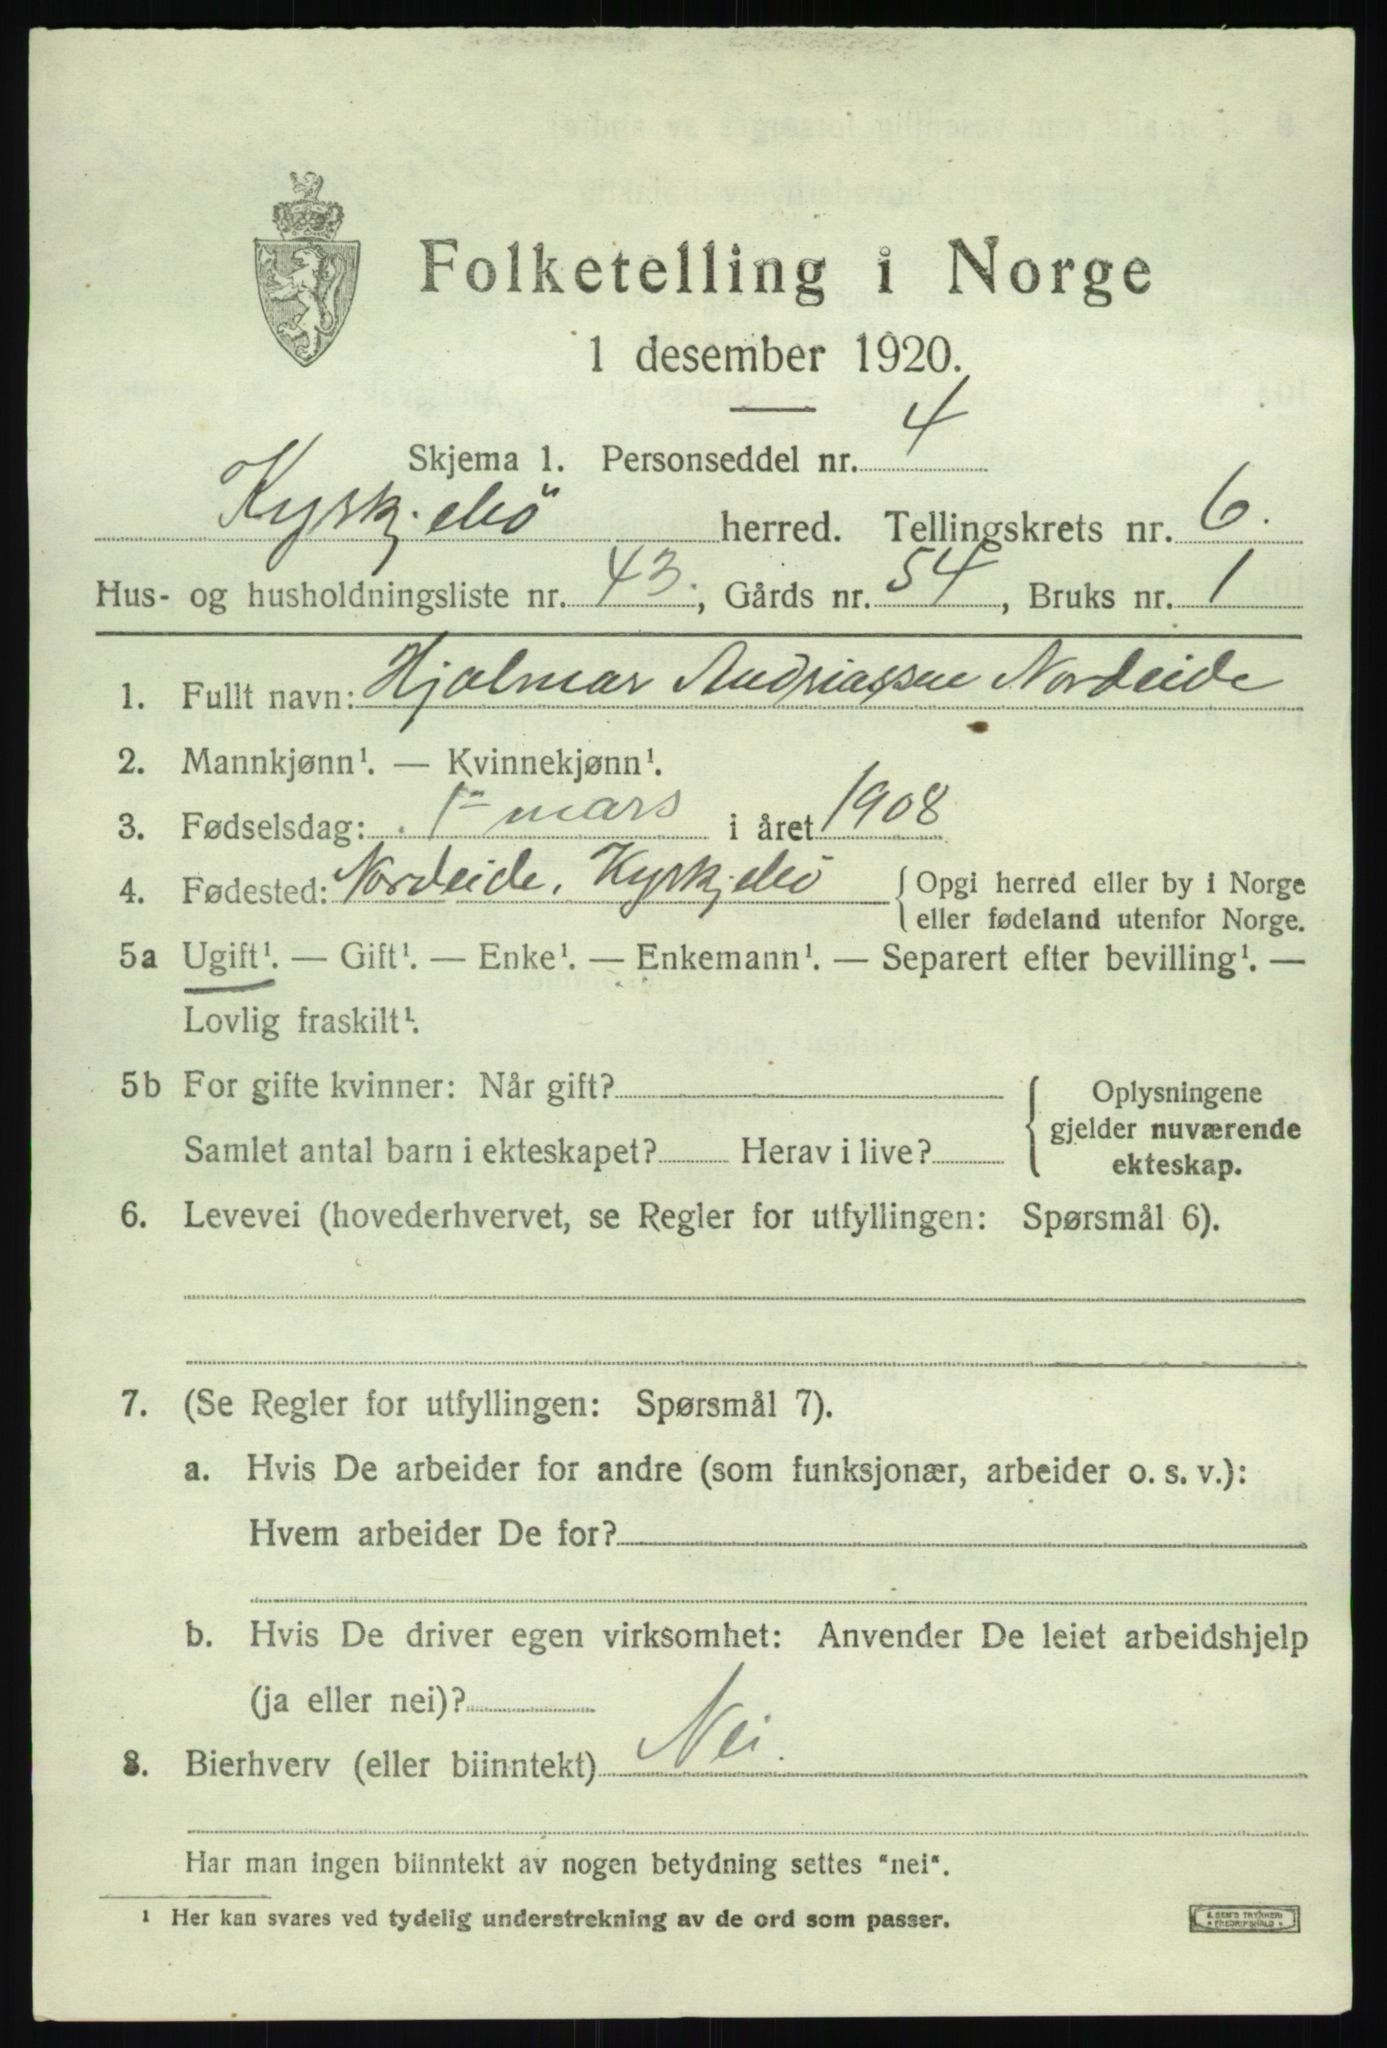 Folketelling i Norge
1 desember 1920.
Skjema 1. Personseddel nr. 4
Kyrkjebö herred. Tellingskrets nr. 6.
Hus- og husholdningsliste nr. 43., Gårds nr. 54, Bruks nr. 1
1. Fullt navn: Hjalmar Andriassen Nordeide
2. Mannkjønn¹. — Kvinnekjønn¹.
3. Fødselsdag: 1ᵐ mars i året 1908
4. Fødested: Nordeide, Kyrkjebö { Opgi herred eller by i Norge
eller fødeland utenfor Norge.
5a Ugift¹. — Gift¹. — Enke¹. — Enkemann¹. — Separert efter bevilling¹. —
Lovlig fraskilt¹.
5b For gifte kvinner: Når gift? { Oplysningene
gjelder nuværende
Samlet antal barn i ekteskapet? Herav i live?
ekteskap.
6. Levevei (hovederhvervet, se Regler for utfyllingen: Spørsmål 6).
7. (Se Regler for utfyllingen: Spørsmål 7).
a. Hvis De arbeider for andre (som funksjonær, arbeider o. s. v.):
Hvem arbeider De for?
b. Hvis De driver egen virksomhet: Anvender De leiet arbeidshjelp
(ja eller nei)?
8. Bierhverv (eller biinntekt) Nei.
Har man ingen biinntekt av nogen betydning settes "nei".
¹ Her kan svares ved tydelig understrekning av de ord som passer.